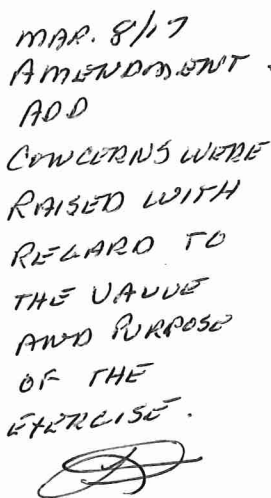 MAR. 8/17
AMENDMENT.
ADD
CONCERNS WERE
RAISED WITH
REGARD TO
THE VALUE
AND PURPOSE
OF THE
EXERCISE.